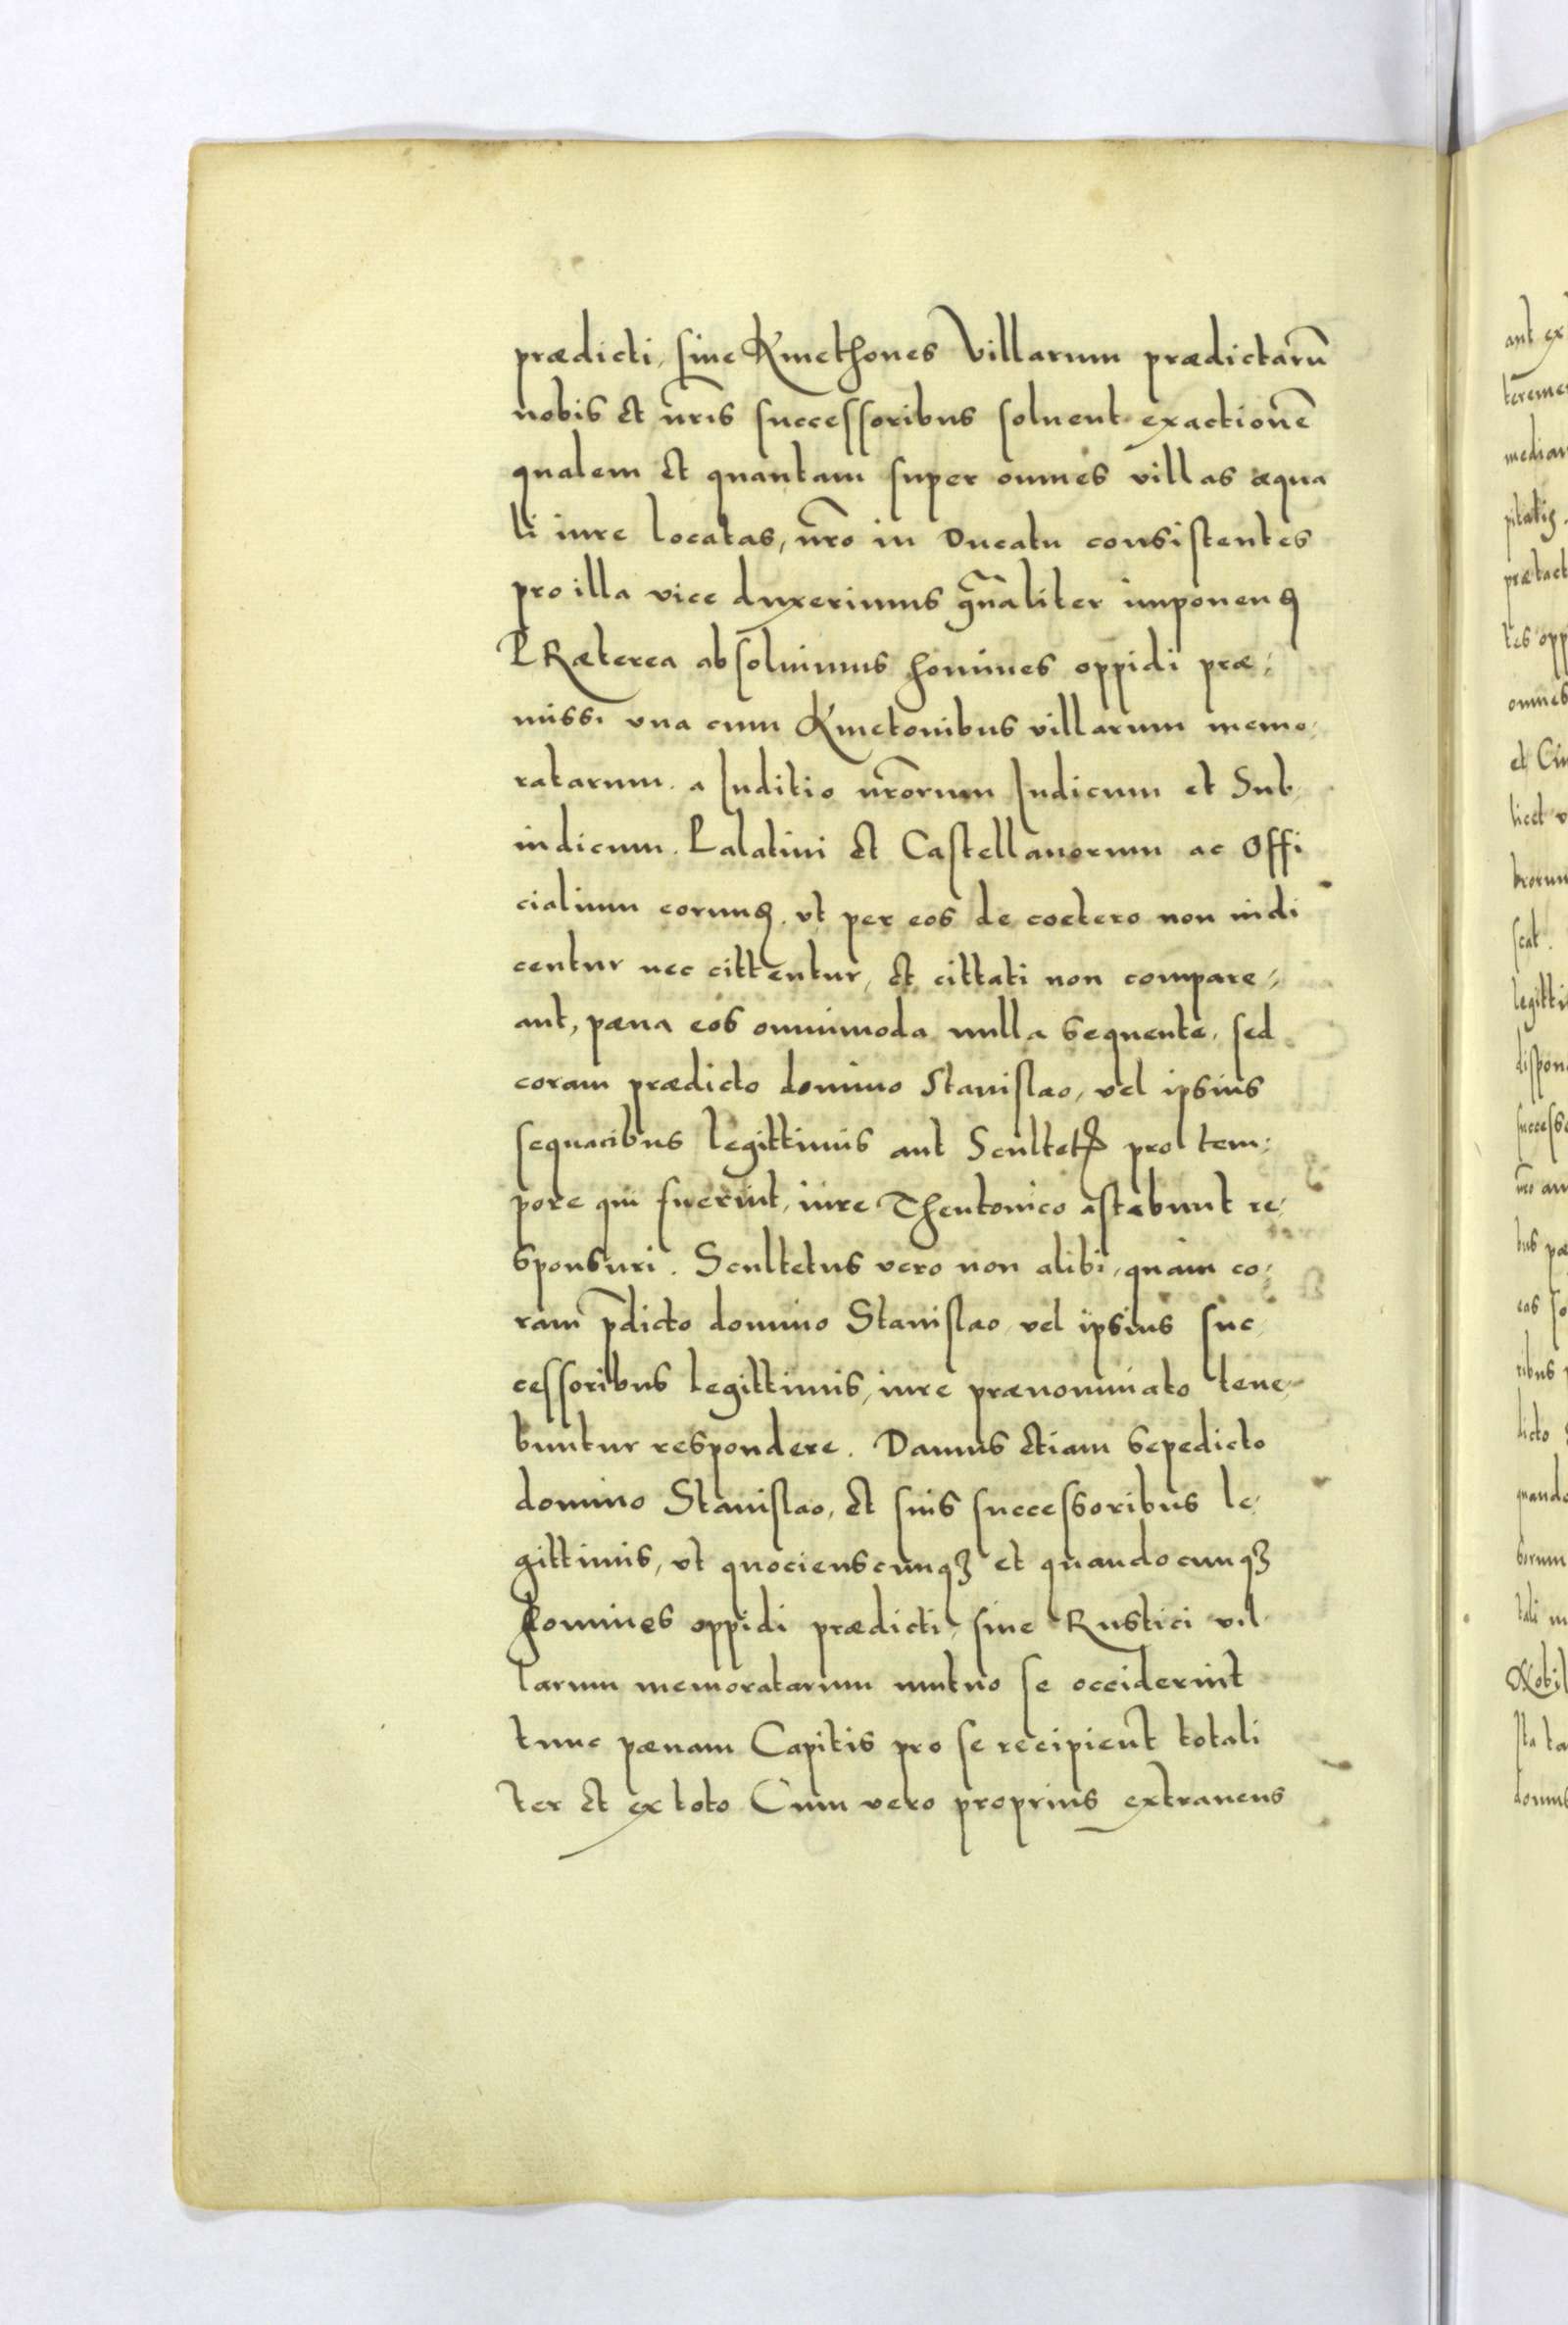 prædicti, siue Kmethones Villarum prædictarũ
nobis et nr̃is successoribus soluent exactionẽ
qualem et quantam super omnes villas æqua
li iure locatas, nr̃o in Ducatu consistentes
pro illa vice duxerimus gñaliter imponendꝭ
PRæterea absoluimus homines oppidi præ:
missi vna cum Kmetonibus villarum memo:
ratarum. a Iuditio nr̃orum Iudicum et Sub
iudicum. Palatini et Castellanorum ac Offi
cialium eorumꝗ. vt per eos de coetero non iudi
centur nec cittentur, et cittati non compare:
ant, pæna eos omnimoda nulla sequente, sed
coram prædicto domino Stanislao, vel ipsius
sequacibus legittimis aut Scultetꝭ pro tem:
pore qui fuerint, iure Theutonico astabunt re:
sponsuri. Scultetus vero non alibi, quàm co:
ram p̃dicto domino Stanislao, vel ipsius suc:
cessoribus legittimis, iure prænominato tene:
buntur respondere. Damus etiam sepedicto
domino Stanislao, et suis successoribus le:
gittimis, vt quocienscunqꝫ et quandocunqꝫ
homines oppidi prædicti, siue Rustici vil
larum memoratarum mutuo se occiderint
tunc pænam Capitis pro se recipient totali
ter et ex toto Cum vero proprius extraneus